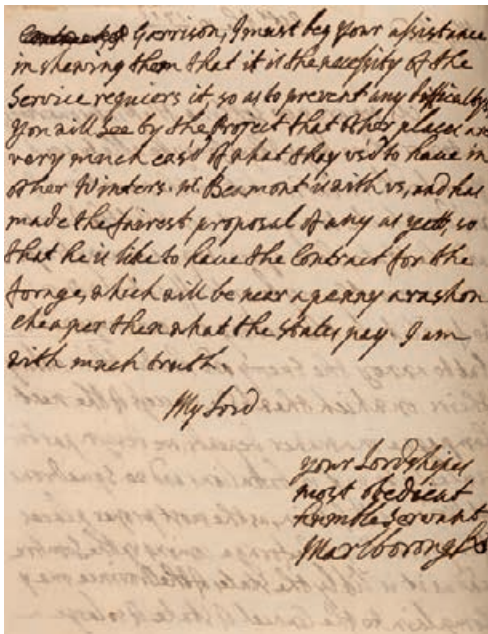 Garrison, I must beg your assistance
in shewing them that it is the necessity of the
Service requiers it, so as to prevent any difficultys
you will see by the project that other places are
very much eas'd of what they us'd to have in
other Winters. Mr. Beamont is with us, and has
made the fairest proposal of any as yett, so
that he is like to have the Contract for the
forage, which will be near a penny a rashon
cheaper then what the states pay. I am
with much truth
My Lord
your Lordships
most obedient
humble servant
Marlborough